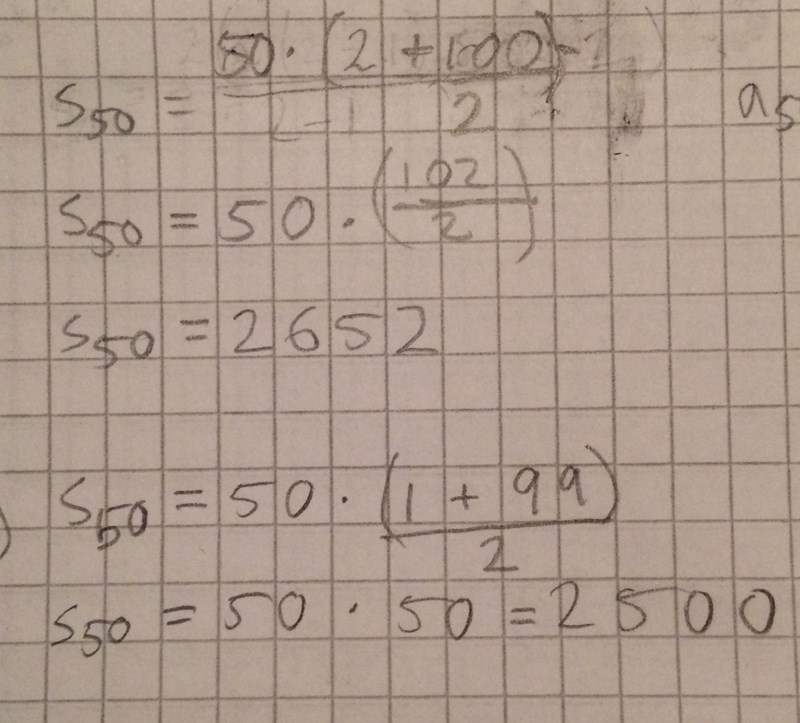 S₅₀ = 50 · (2 + 100) / 2
a₅
S₅₀ = 50 · (102 / 2)
S₅₀ = 2652
S₅₀ = 50 · (1 + 99) / 2
S₅₀ = 50 · 50 = 2500